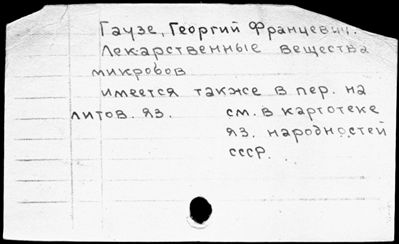 Гаузе, Георгий Францевич.
Лекарственные вещества
микробов
имеется также в пер. на
литов. яз. см. в картотеке
яз. народностей
СССР.